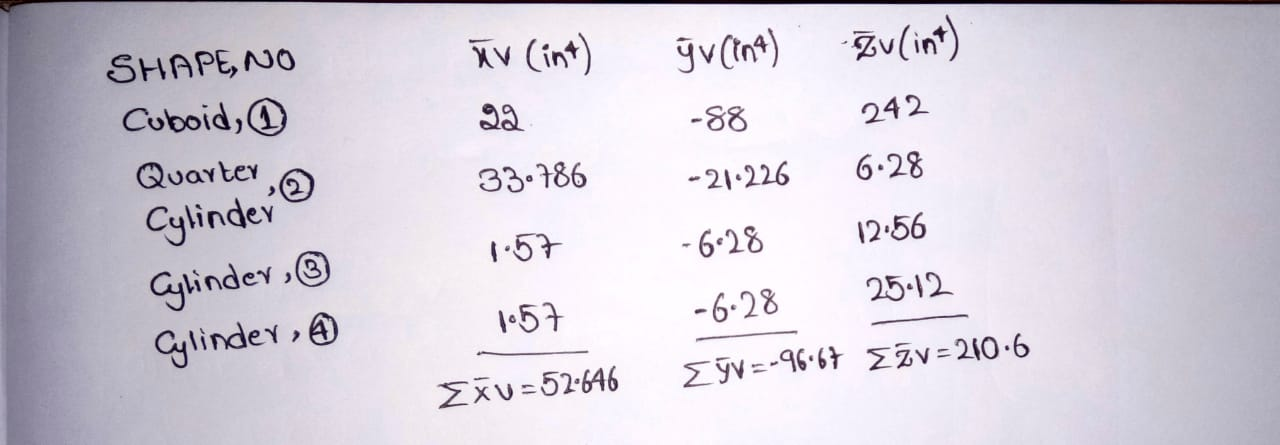 SHAPE, NO x̄v (in⁴) ȳv (in⁴) z̄v (in⁴)
Cuboid, ① 22 -88 242
Quarter Cylinder, ② 33.786 -21.226 6.28
Cylinder, ③ 1.57 -6.28 12.56
Cylinder, ④ 1.57 -6.28 25.12
Σx̄v = 52.646 Σȳv = -96.67 Σz̄v = 210.6